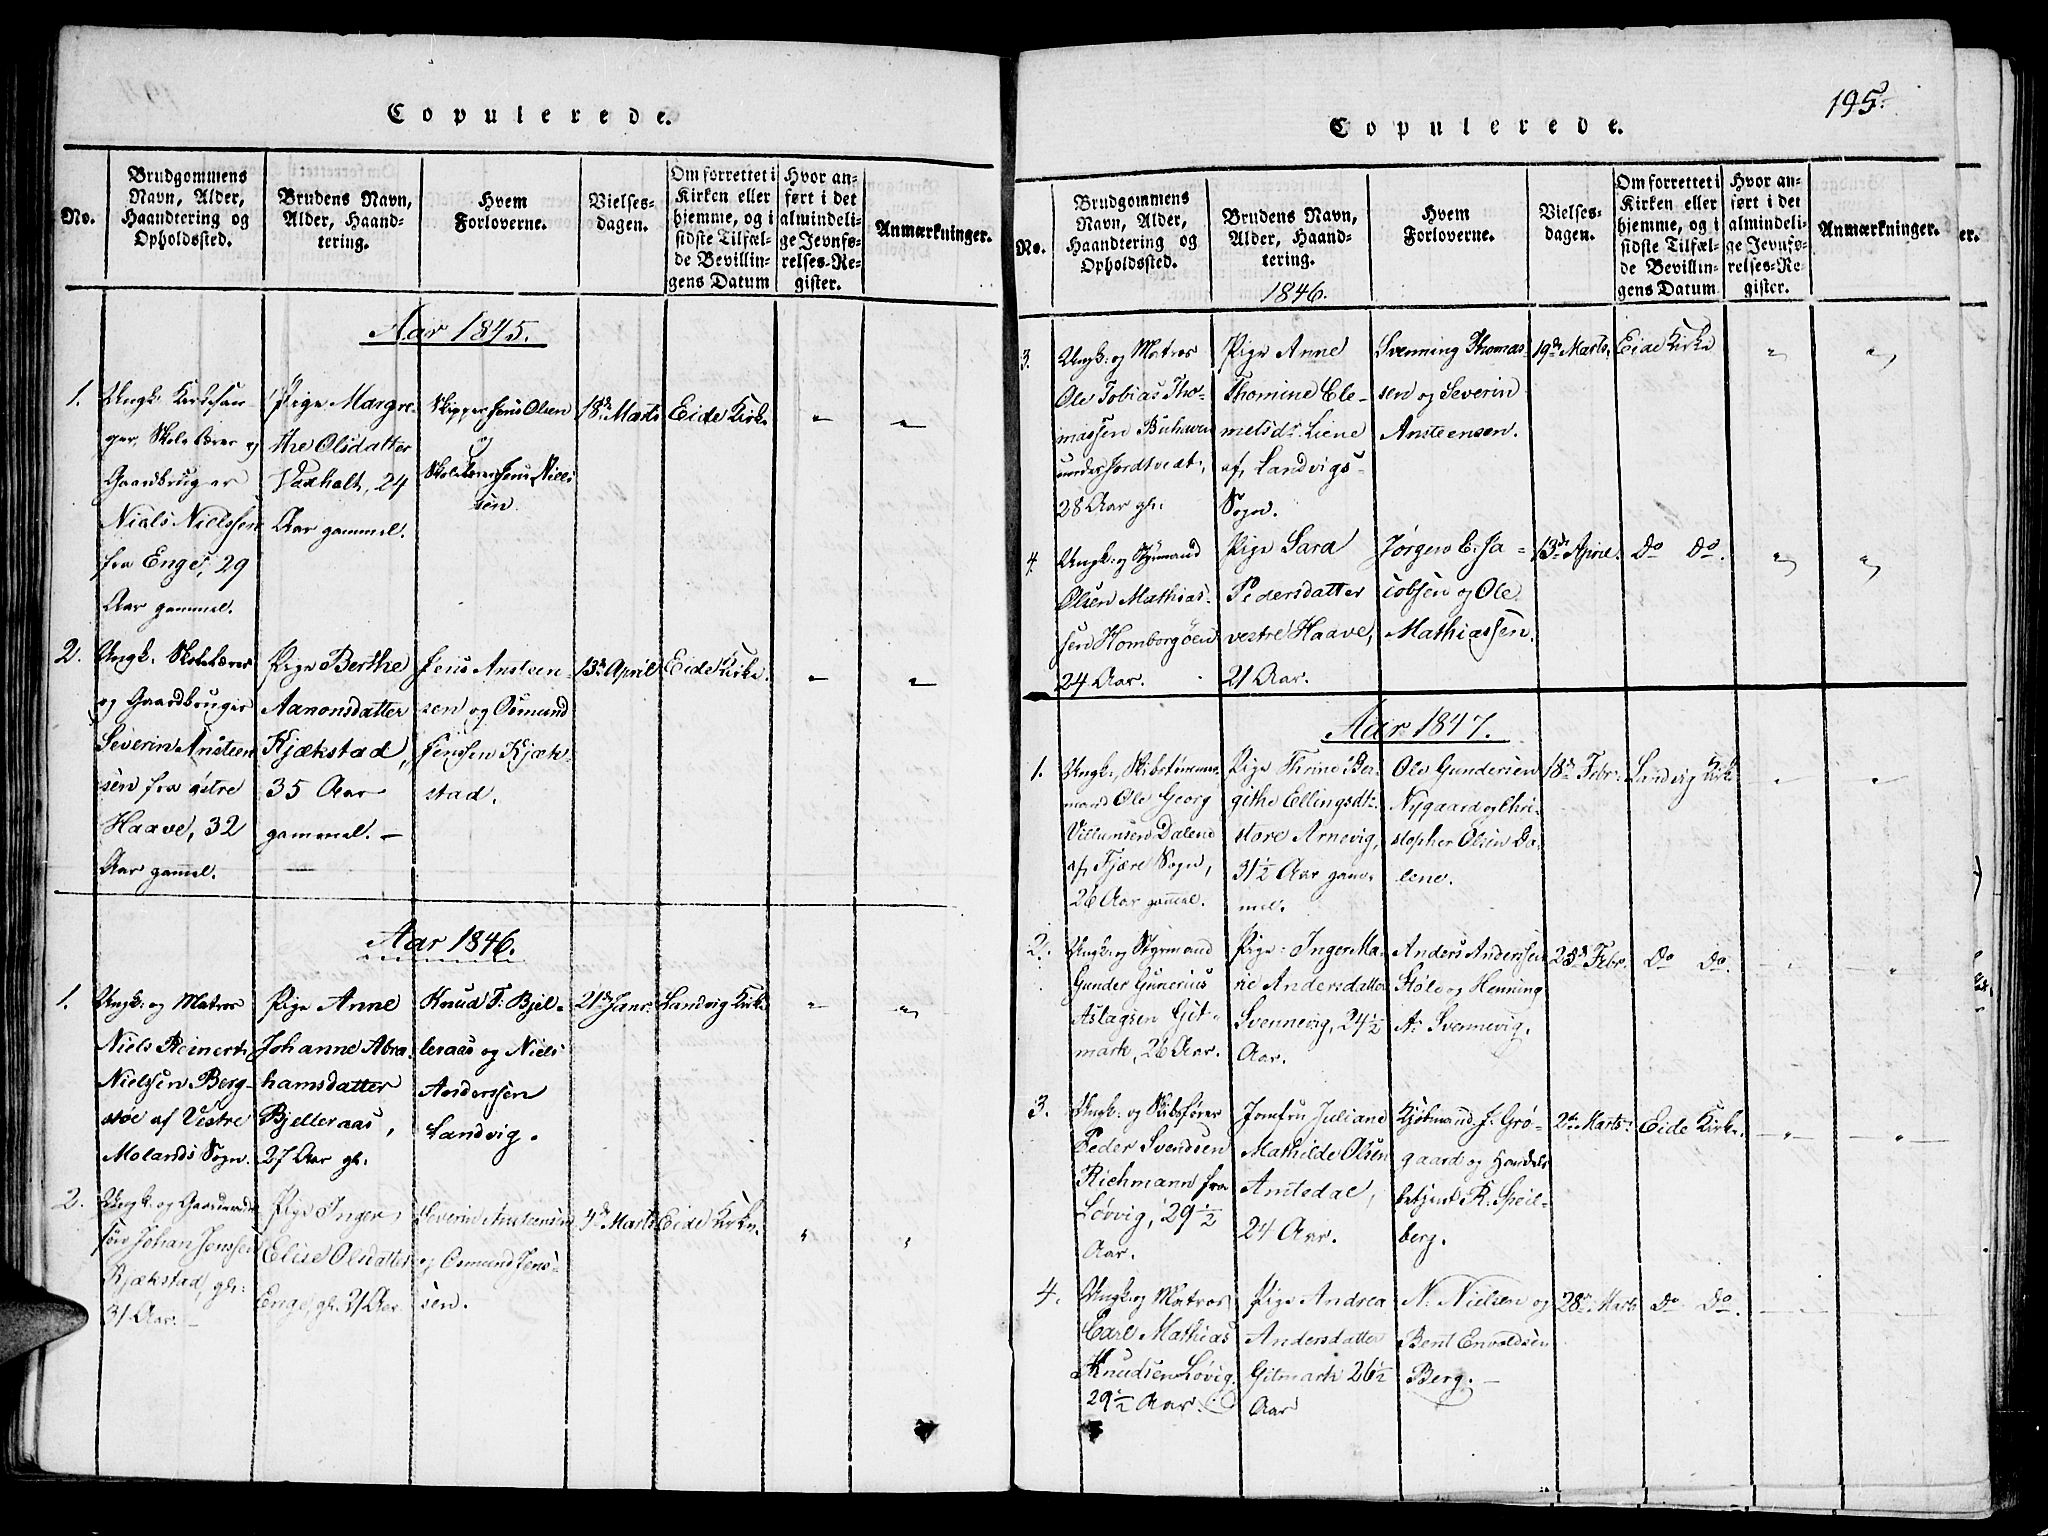 Copulerede.
No.
Brudgommens
Navn, Alder,
Haandtering og
Opholdssted.
Brudens Navn,
Alder, Haand-
tering.
Hvem
Forloverne.
Vielses-
dagen.
Om forrettet i
Kirken eller
hjemme, og i
sidste Tilfæl-
de Bevillin-
gens Datum
Hvor an-
ført i det
almindeli-
ge Jevnfø-
relses-Re-
gister.
Anmærkninger.
Aar 1845.
1.
Ungk. Kirkesan-
ger, Skolelærer og
Gaardbruger
Niels Nielssen
fra Enge, 29
Aar gammel.
Pige Margre-
the Olsdatter
Vaxholt, 24
Aar gammel.
Skipper Jens Olsen
og
Skolelærer Jens Niels
sen.
18de Marts
Eide Kirke
"
"
2.
Ungk. Skolelærer
og Gaardbruger
Severin Ansteen
sen fra østre
Haave, 32
Aar gammel.
Pige Berthe
Aanonsdatter
Kjækstad,
35 Aar
gammel. —
Jens Ansteen-
sen og Osmund
Jenssen Kjæk-
stad.
13de April
Eide Kirke.
"
"
Aar 1846.
1.
Ungk. og Matros
Niels Reinert
Nielssen Berg-
støe af Vestre
Molands Sogn.
Pige Anne
Johanne Abra-
hamsdatter
Bjelleraas,
27 Aar gl.
Knud T. Bjel-
leraas og Niels
Anderssen
Landvig.
21de Janr.
Landvig Kirke
"
"
2.
Ungk. og
Johan Jenssen
Kjækstad, gl.
31 Aar. —
Pige Inger
Elise Olsdatter
Enge, gl. 21 Aar.
Severin Ansteensen
og Osmund Jens-
sen.
4de Marts
Eide Kirke.
"
"
195.
Copulerede.
No.
Brudgommens
Navn, Alder,
Haandtering og
Opholdssted.
Brudens Navn,
Alder, Haand-
tering.
1846.
Hvem
Forloverne.
Vielses-
dagen.
Om forrettet i
Kirken eller
hjemme, og i
sidste Tilfæl-
de Bevillin-
gens Datum
Hvor an-
ført i det
almindeli-
ge Jevnfø-
relses-Re-
gister.
Anmærkninger.
3.
Ungk. og Matros
Ole Tobias Tho-
massen Buhaven
under Jordtvedt,
28 Aar gl.
Pige Anne
Thomine Cle-
metsdr. Liene
af Landvigs-
Sogn.
Svenning Thomas-
sen og Severin
Ansteensen.
19de Marts.
Eide Kirke
"
"
4.
Ungk. og Styrmand
Olsen Mathias-
sen Homborgøen
24 Aar.
Pige Sara
Pedersdatter
vestre Haave,
21 Aar.
Jørgen C. Ja-
cobsen og Ole
Mathiassen.
13de April.
Do Do.
"
"
Aar 1847.
1.
Ungk., Skibstømmer-
mand Ole Georg
Villumsen Dalene
af Fjære Sogn,
26 Aar gammel.
Pige Thrine Ber-
githe Ellingsdtr.
store Arnevig,
31½ Aar gam-
mel.
Ole Gundersen
Nygaard og Chri-
stopher Olsen Da-
lene.
18de Febr.
Landvig Kirke
"
"
2.
Ungk. og Styrmand
Gunder Gunerius
Aslagsen Git-
mark, 26 Aar.
Pige Inger Ma-
rie Andersdatter
Svennevig, 24½
Aar.
Anders Anderssen
Støle og Henning
A. Svennevig.
25de Febr.
Do Do.
"
"
3.
Ungk. og Skibsfører
Peder Svendsen
Richmann fra
Løvvig, 29½
Aar.
Jomfru Juliane
Mathilde Olsen
Amtsdal,
24 Aar.
Kjøbmand J. Grø-
gaard og Handels-
betjent K. Speil-
berg.
2de Marts.
Eide Kirke.
"
"
4.
Ungk. og Matros
Carl Mathias
Knudsen Løvig,
29½ Aar.
Pige Andrea
Andersdatter
Gitmark 26½
Aar
N. Nielsen og
Bent Envoldsen
Berg. —
28de Marts
Do Do.